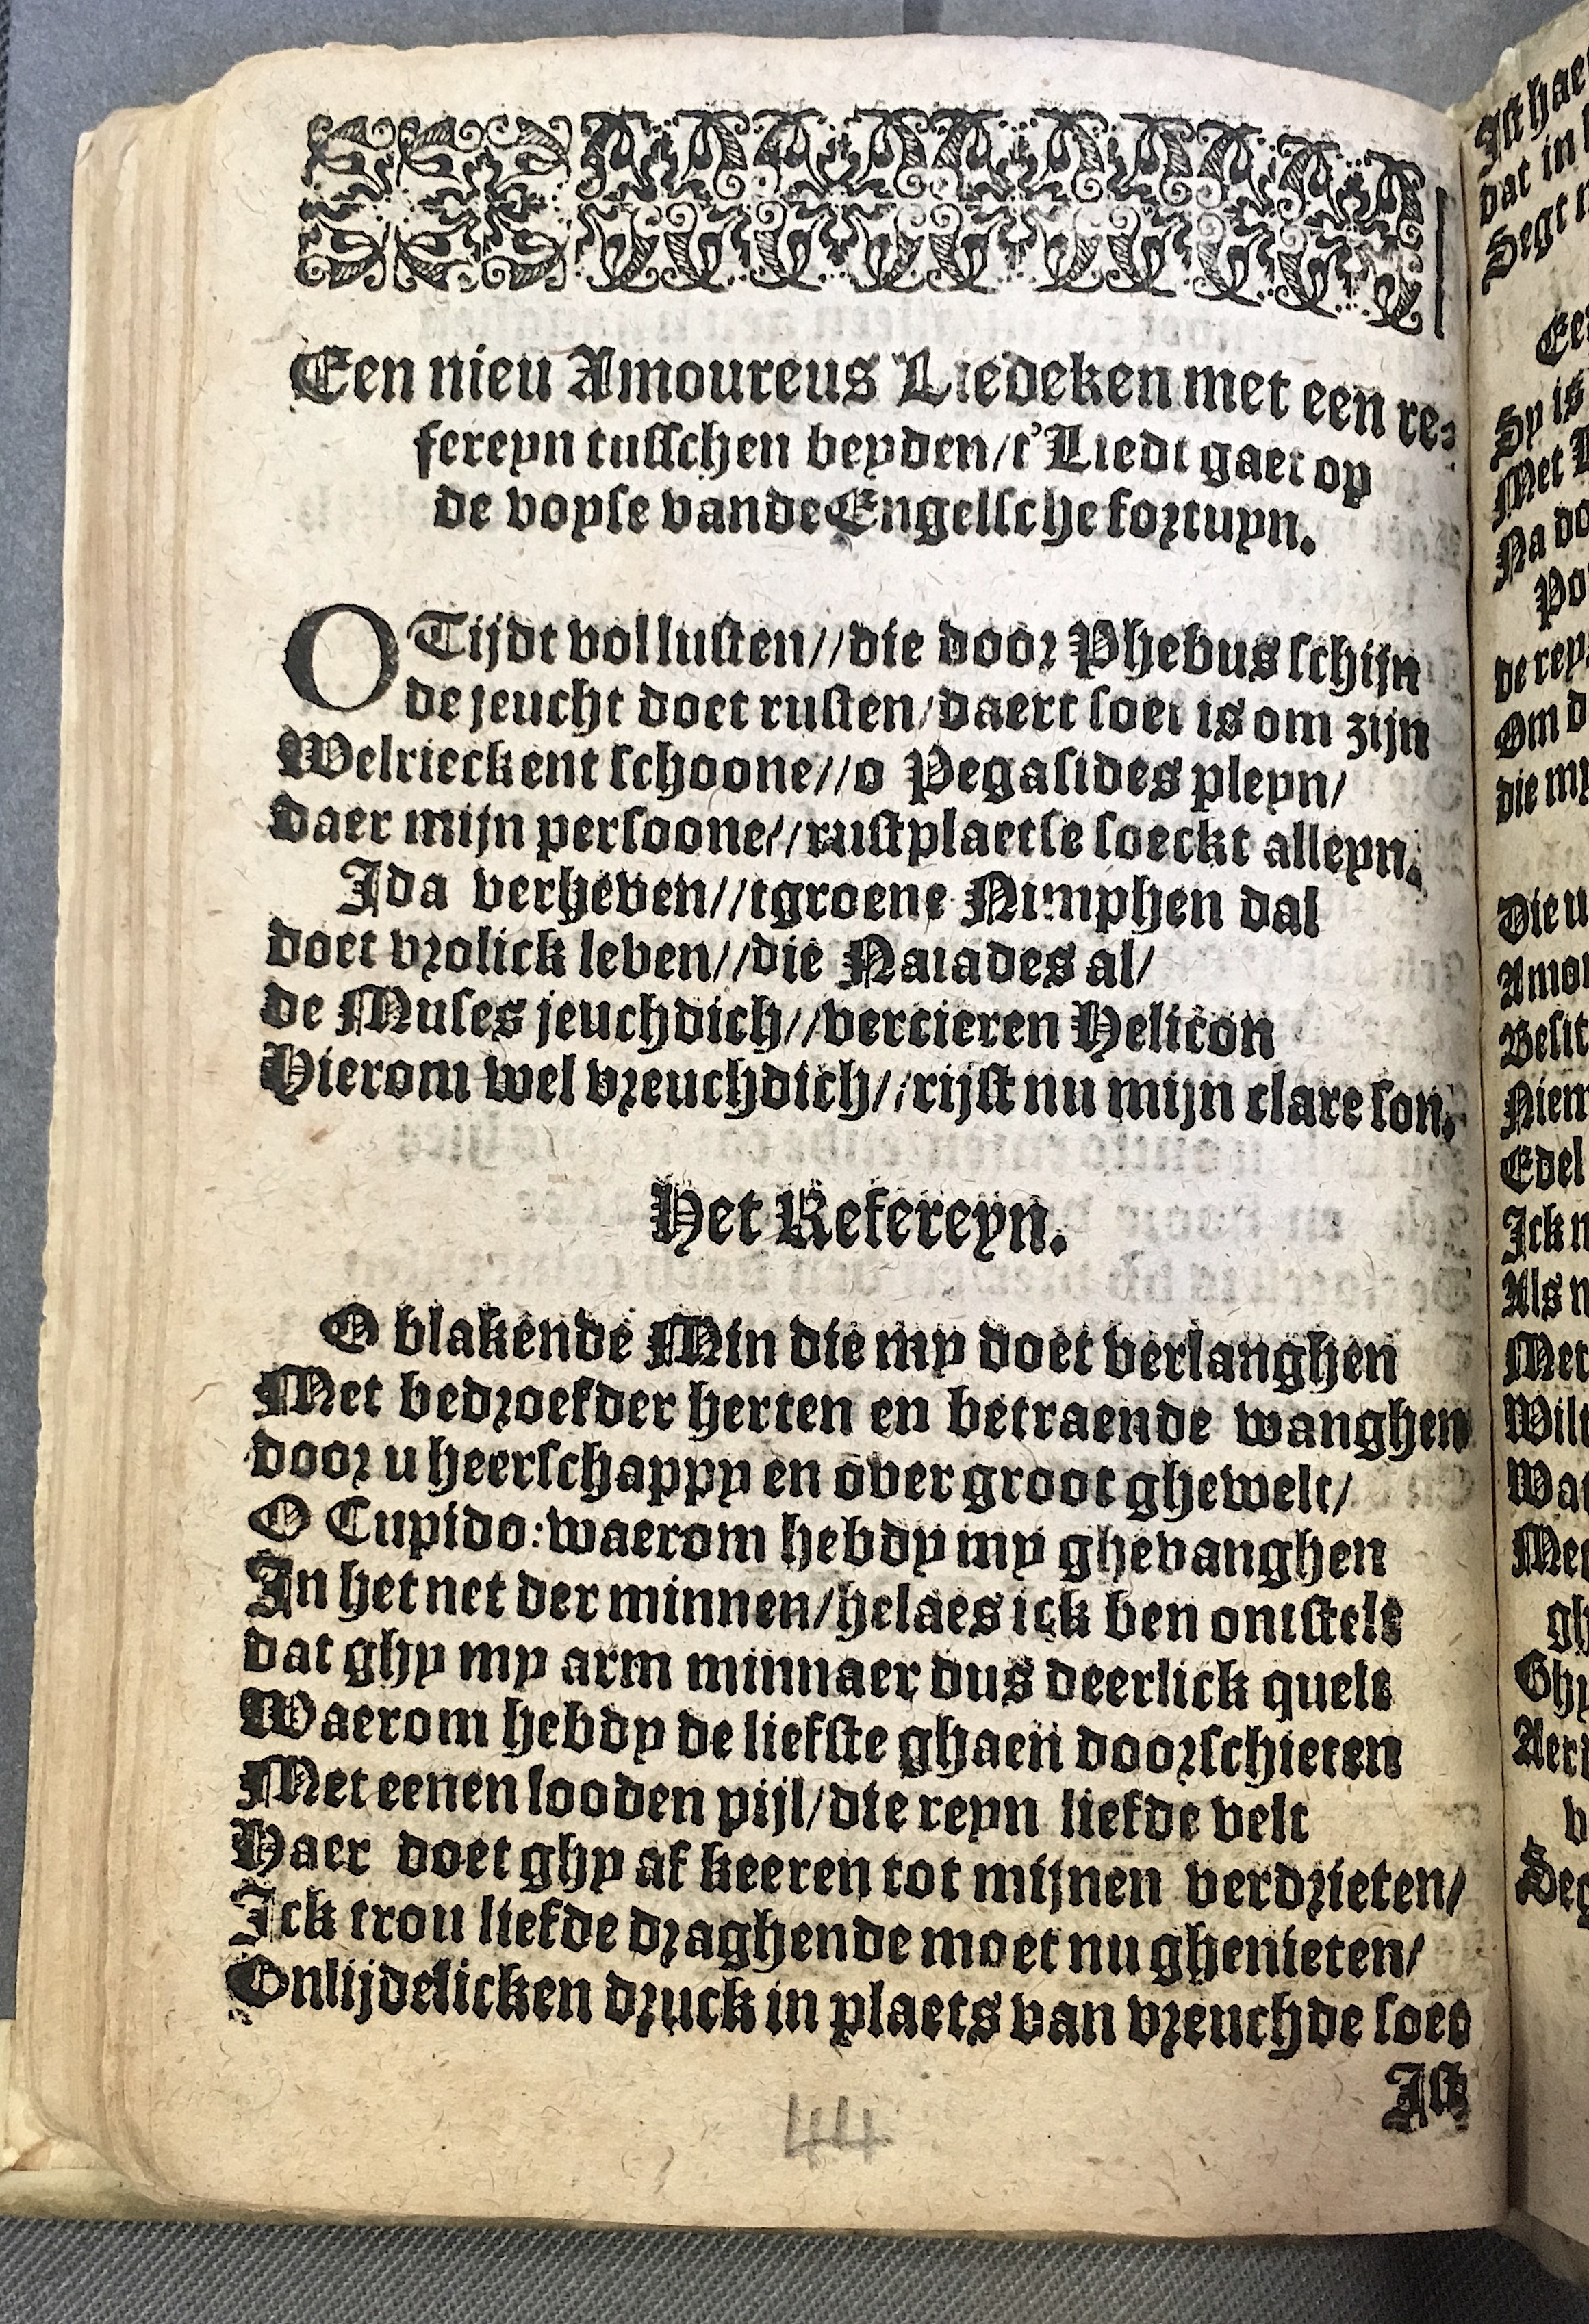 Een nieu Amoureus Liedeken met een re-
fereyn tusschen beyden/t'Liedt gaet op
de voyse vande Engelsche fortuyn.
O Tijdt vol lusten//die door Phebus schijn
de jeucht doet rusten/daert soet is om zijn
Welrieckent schoone//o Pegasides pleyn/
daer mijn persoone//rustplaetse soeckt alleyn.
Ida verheven//tgroene Nimphen dal
doet vrolick leven//die Naiades al/
de Muses jeuchdich//vercieren Helicon
Hierom wel vreuchdich//rijst nu mijn clare son.
Het Refereyn.
O blakende Min die my doet verlanghen
Met bedroefder herten en betraende wanghen
door u heerschappy en over groot ghewelt/
O Cupido: waerom hebdy my ghevanghen
In het net der minnen/helaes ick ben ontstelt
dat ghy my arm minnaer dus deerlick quelt
Waerom hebdy de liefste ghaen doorschieten
Met eenen looden pijl/die reyn liefde velt
Haer doet ghy af keeren tot mijnen verdrieten/
Ick trou liefde draghende moet nu ghenieten/
Onlijdelicken druck in plaets van vreuchde soet
Ick
44
Ick
dat in
Segt
Sy is
Met
Na
de
Om
die
Die
Niem
Edel
Ick
Als
Met
Wilt
Met
Ghy